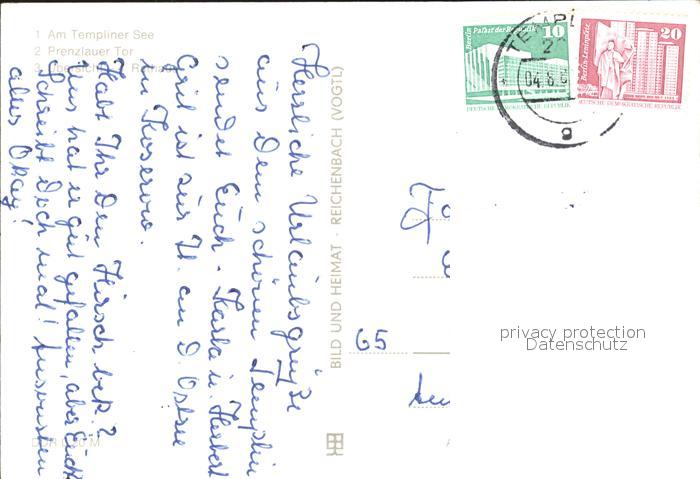 1 Am Templiner See
2 Prenzlauer Tor
3
Herrliche Urlaubsgrüße
aus dem schönen Templin
sendet Euch - Karla u. Herbert
Gril ist zur Zt. an d. Ostsee
in Koserow.
Habt Ihr den Hirsch bek.?
Uns hat er gut gefallen, aber Euch
Schreibt doch mal! Ansonsten
alles Okay!
DDR M
BILD UND HEIMAT · REICHENBACH (VOGTL)
Berlin Palast der Republik
10
DEUTSCHE DEMOKRATISCHE REPUBLIK
Berlin-Leninplatz
20
DEUTSCHE DEMOKRATISCHE REPUBLIK
TEMPL
2
04.8.8
g
65
privacy protection
Datenschutz